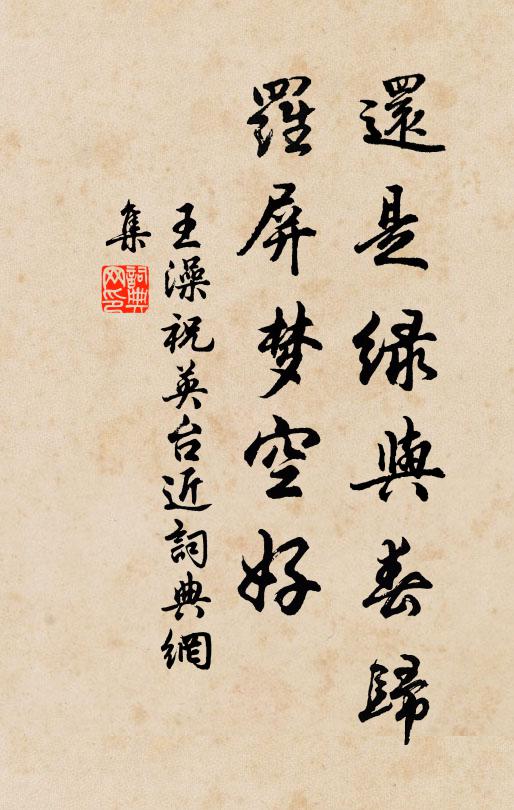 還是緑與春歸
羅屏梦空好
王澡祝英台近詞典網
集
詞典网印